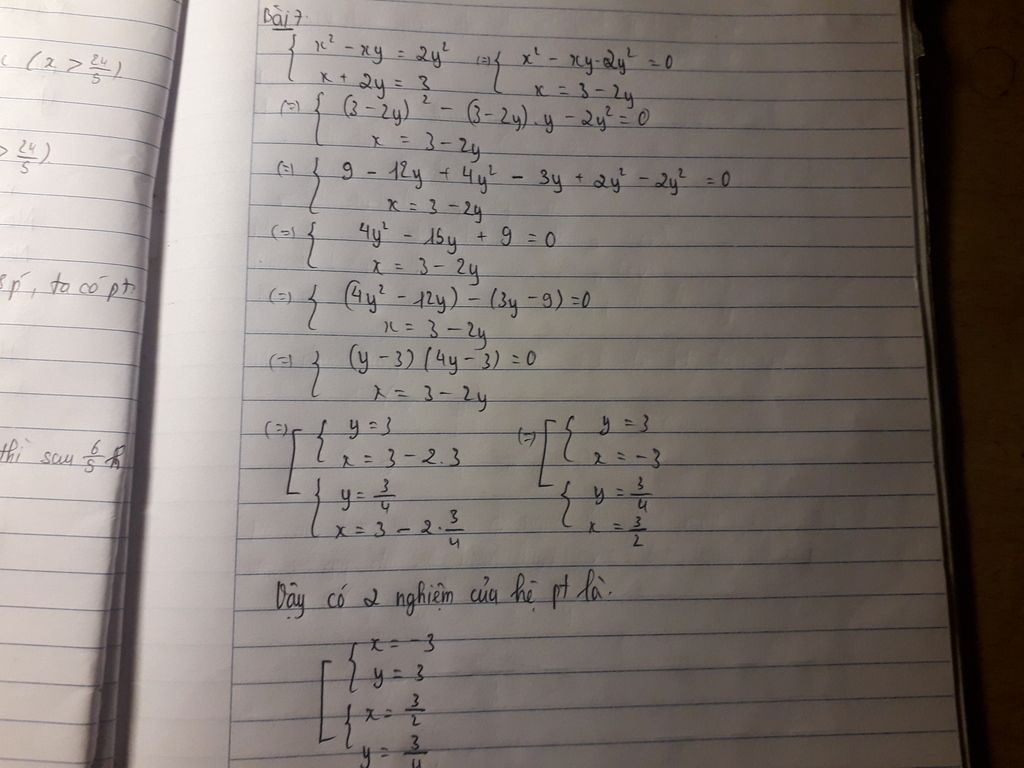 ( x > 24/5 )
> 24/5 )
, ta có pt
thì sau 6/5 h
Bài 7.
{ x² - xy = 2y² (=) { x² - xy - 2y² = 0
{ x + 2y = 3 { x = 3 - 2y
(=) { (3 - 2y)² - (3 - 2y).y - 2y² = 0
{ x = 3 - 2y
(=) { 9 - 12y + 4y² - 3y + 2y² - 2y² = 0
{ x = 3 - 2y
(=) { 4y² - 15y + 9 = 0
{ x = 3 - 2y
(=) { (4y² - 12y) - (3y - 9) = 0
{ x = 3 - 2y
(=) { (y - 3) (4y - 3) = 0
{ x = 3 - 2y
(=) [ { y = 3 (=) [ { y = 3
{ x = 3 - 2.3 { x = -3
{ y = 3/4 { y = 3/4
{ x = 3 - 2.3/4 { x = 3/2
Vậy có 2 nghiệm của hệ pt là:
[ { x = -3
{ y = 3
{ x = 3/2
{ y = 3/4